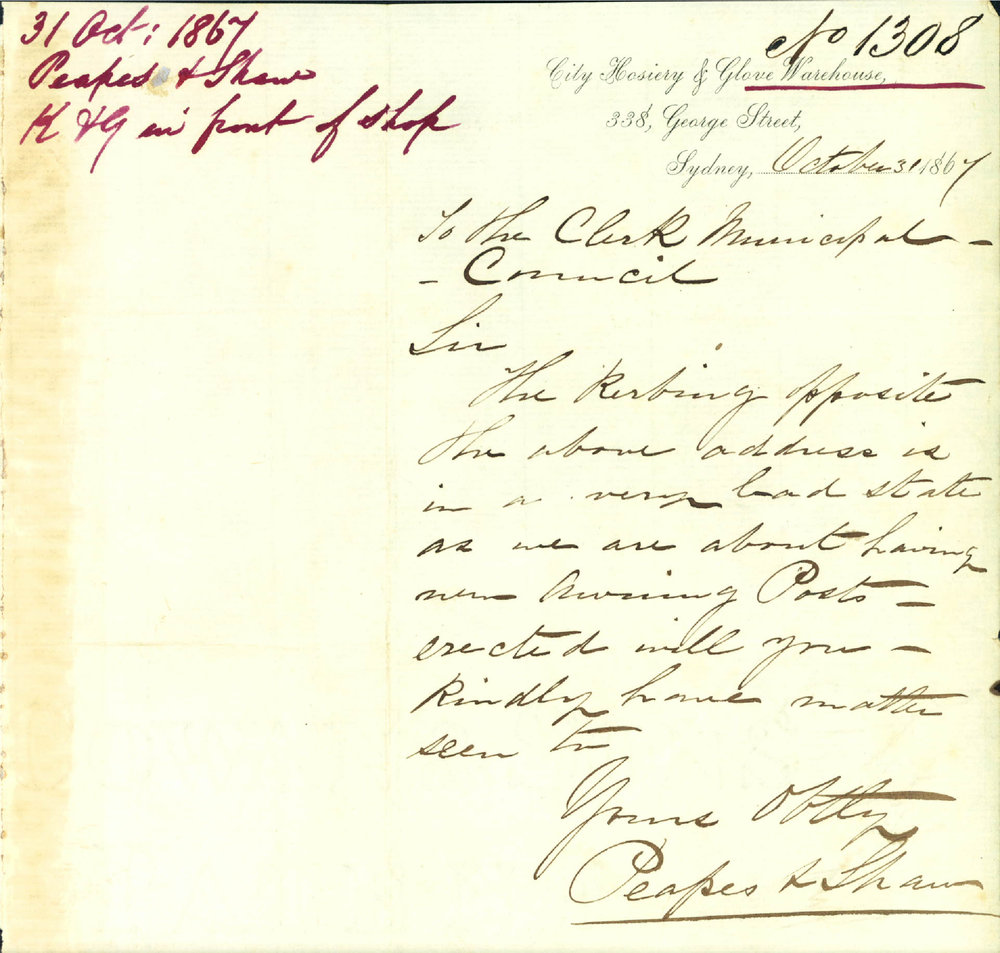 31 Oct: 1867
Peapes & Shaw
K & G in front of shop
No 1308
City Hosiery & Glove Warehouse,
338, George Street,
Sydney, October 31 1867
To the Clerk Municipal -
- Council
Sir
The Kerbing opposite
the above address is
in a very bad state
as we are about having
new Awning Posts -
erected will you -
Kindly have matter
seen to
Yours Obtly
Peapes & Shaw